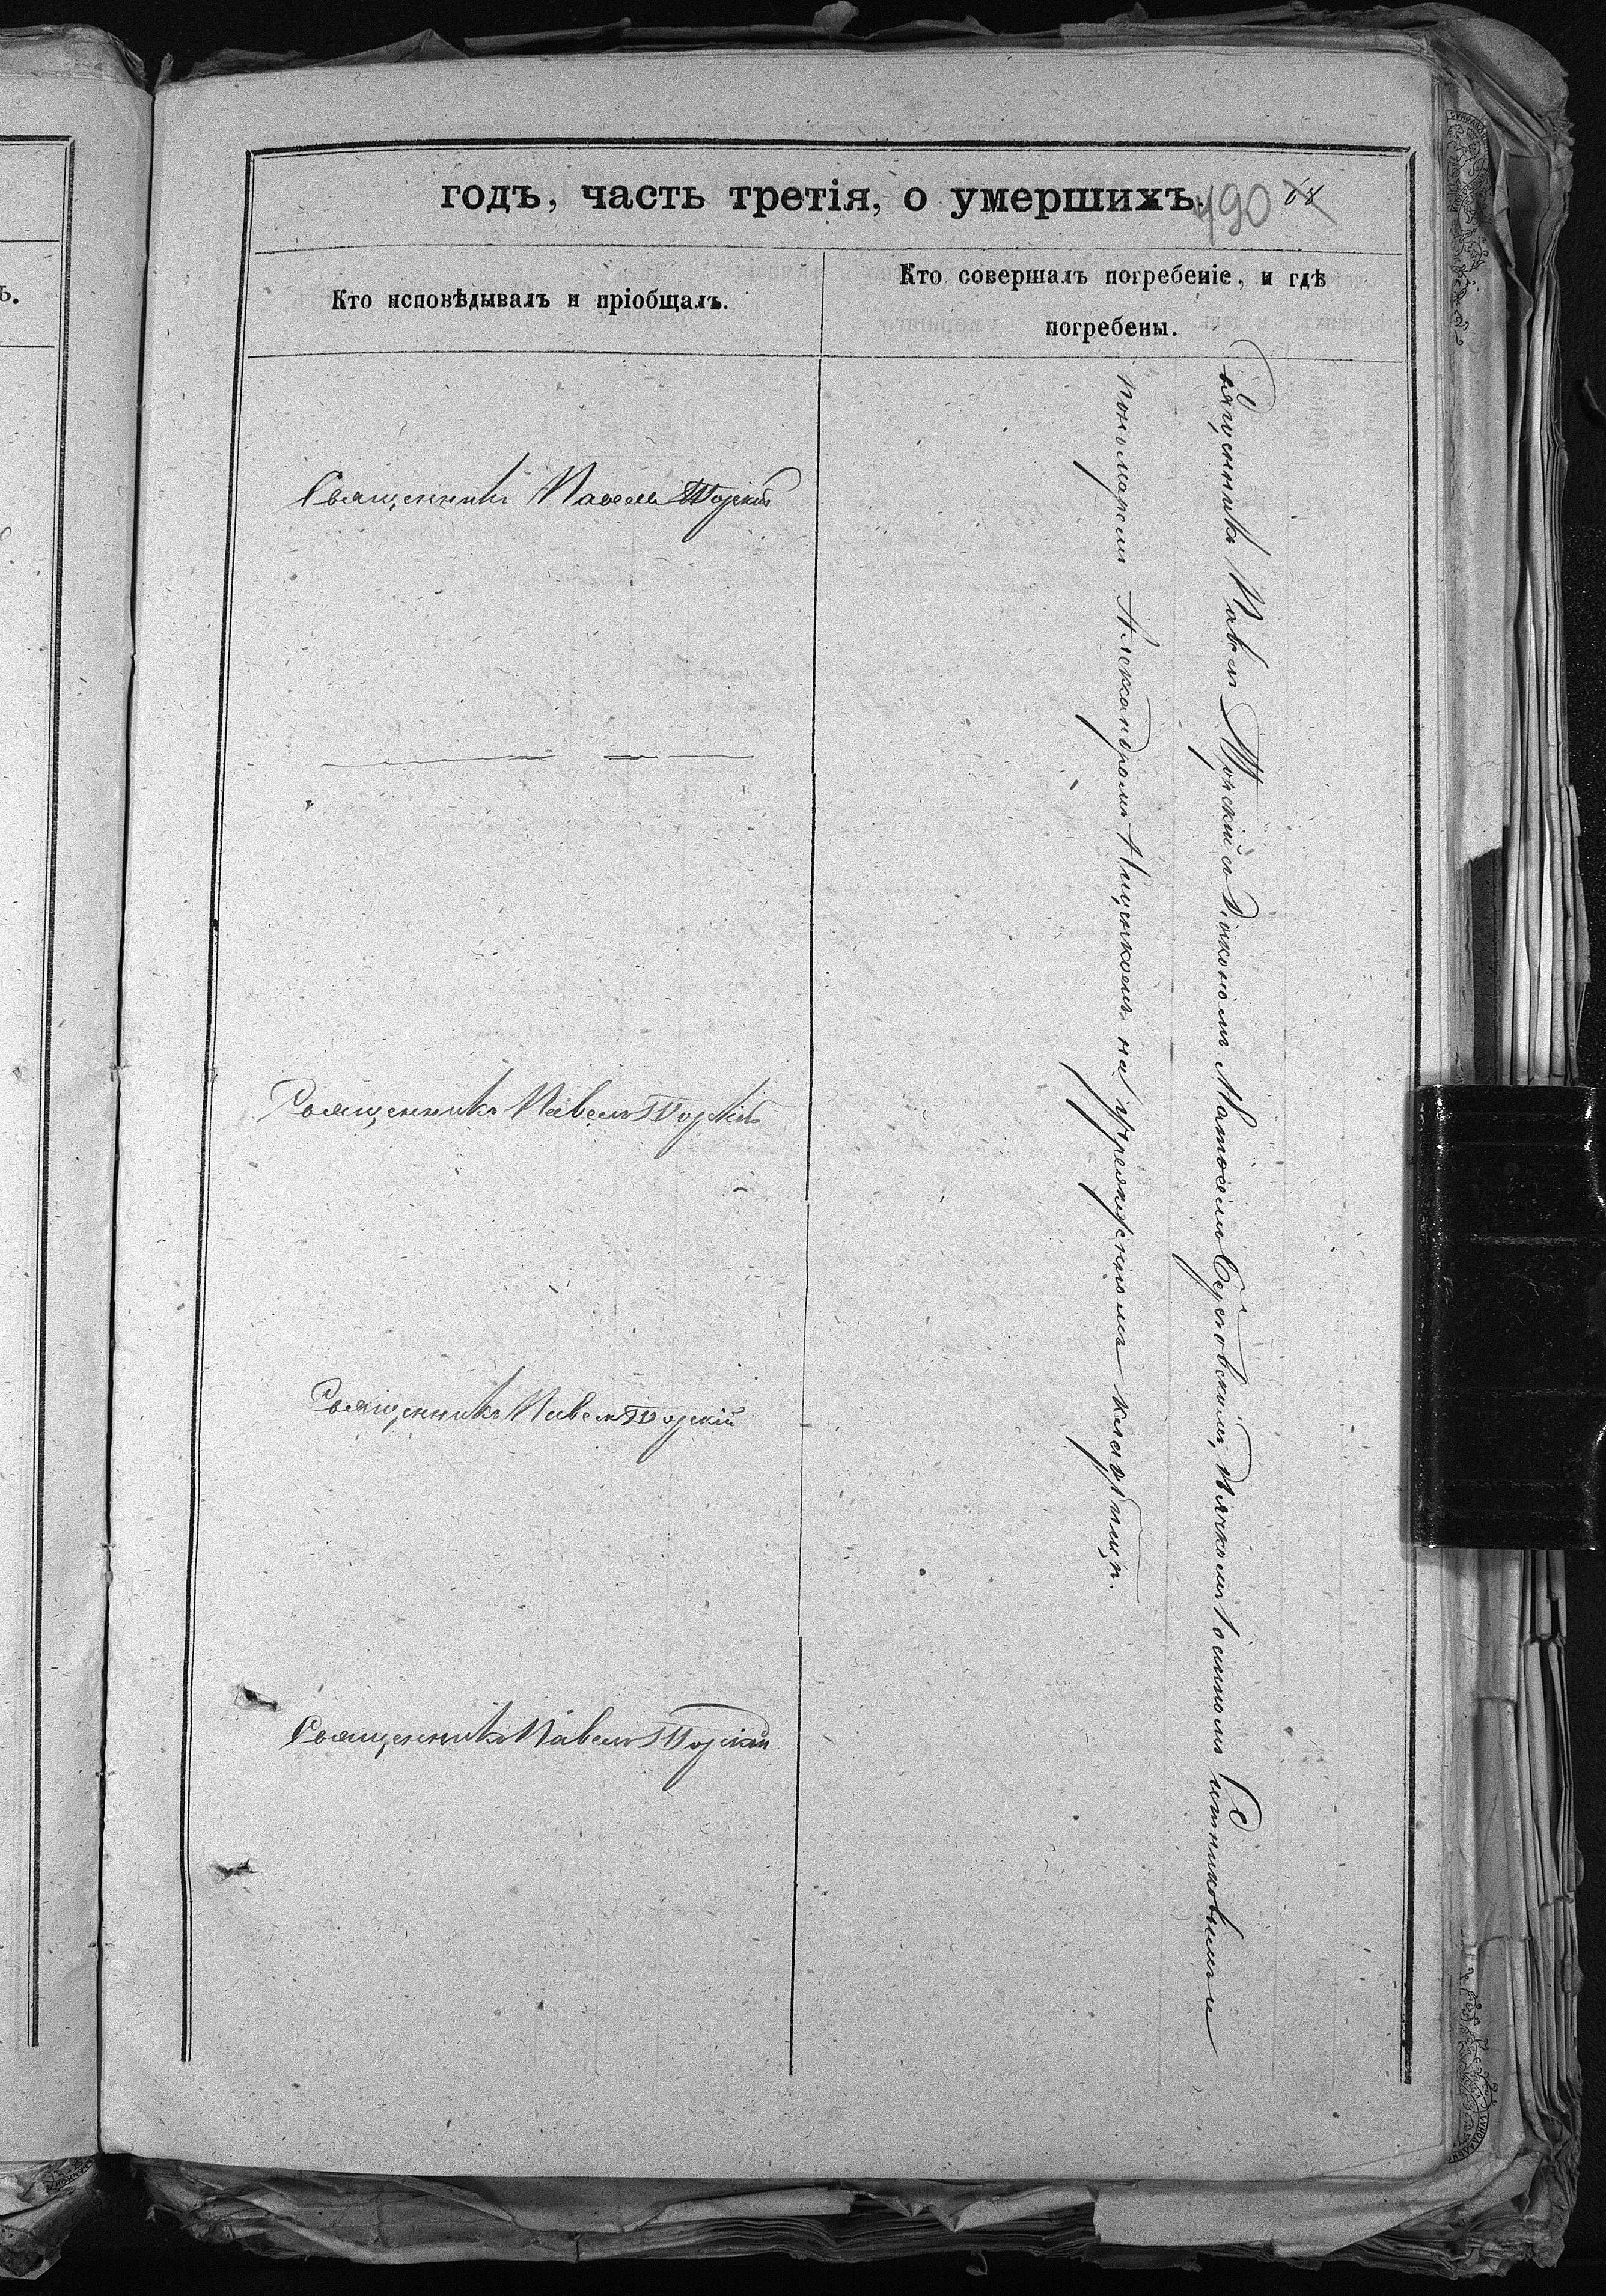 годъ, часть третія, о умершихъ.
490
Кто исповѣдывалъ и пріобщалъ.
Кто совершалъ погребеніе, и гдѣ
погребены.
Священникъ Павелъ Торскій
Священникъ Павелъ Торскій
Священникъ Павелъ Торскій
Священникъ Павелъ Торскій
Священникъ Павелъ Торскій съ Діакономъ Матѳеемъ дьячкомъ Іоанномъ Ситниковымъ и
пономаремъ Александромъ на приходскомъ кладбищѣ.